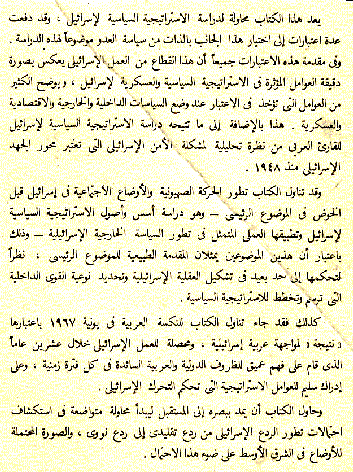 يعد هذا الكتاب محاولة لدراسة الاستراتيجية السياسية لإسرائيل ، وقد دفعت
عدة اعتبارات إلى اختيار هذا الجانب بالذات من سياسة العدو موضوعاً لهذه الدراسة .
وفى مقدمة هذه الاعتبارات جميعاً أن هذا القطاع من العمل الإسرائيلى يعكس بصورة
دقيقة العوامل المؤثرة فى الاستراتيجية السياسية والعسكرية لإسرائيل ، ويوضح الكثير
من العوامل التى تؤخذ فى الاعتبار عند وضع السياسات الداخلية والخارجية والاقتصادية
والعسكرية . هذا بالإضافة إلى ما تتيحه دراسة الاستراتيجية السياسية لإسرائيل
للقارئ العربى من نظرة تحليلية لمشكلة الأمن الإسرائيلى التى تعتبر محور الجهد
الإسرائيلى منذ ١٩٤٨ .
وقد تناول الكتاب تطور الحركة الصهيونية والأوضاع الاجتماعية فى إسرائيل قبل
الخوض فى الموضوع الرئيسى – وهو دراسة أسس وأصول الاستراتيجية السياسية
لإسرائيل وتطبيقها العملى المتمثل فى تطور السياسة الخارجية الإسرائيلية – وذلك
باعتبار أن هذين الموضوعين يمثلان المقدمة الطبيعية للموضوع الرئيسى ، نظراً
لتحكمها إلى حد بعيد فى تشكيل العقلية الإسرائيلية وتحديد نوعية القوى الداخلية
التى ترسم وتخطط للاستراتيجية السياسية .
كذلك فقد جاء تناول الكتاب للنكسة العربية فى يونية ١٩٦٧ باعتبارها
« نتيجة » لمواجهة عربية إسرائيلية ، ومحصلة للعمل الإسرائيلى خلال عشرين عاماً
الذى قام على فهم عميق للظروف الدولية والعربية السائدة فى كل فترة زمنية ، وعلى
إدراك سليم للعوامل الاستراتيجية التى تحكم التحرك الإسرائيلى .
وحاول الكتاب أن يمد ببصره إلى المستقبل ليبدأ محاولة متواضعة فى استكشاف
احتمالات تطور الردع الإسرائيلى من ردع تقليدى إلى ردع نووى ، والصورة المحتملة
للأوضاع فى الشرق الأوسط على ضوء هذا الاحتمال .